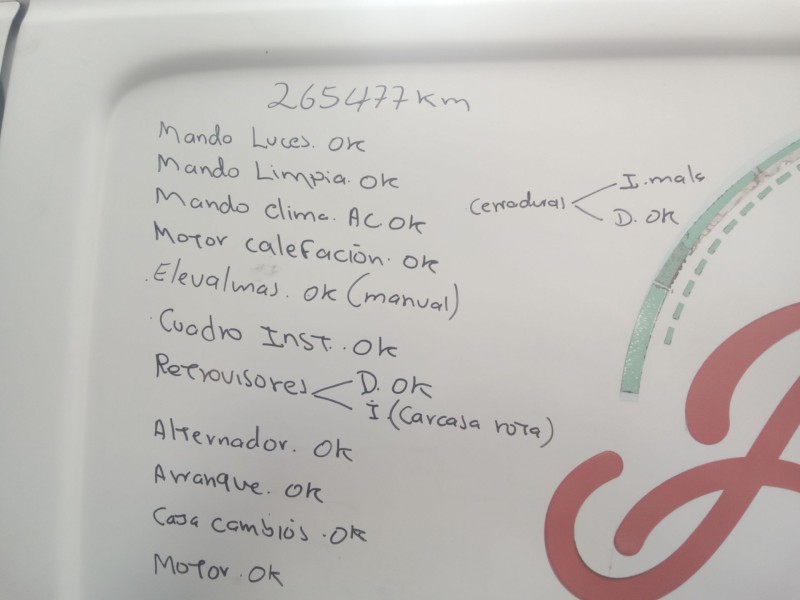 265477 km
Mando Luces. OK
Mando Limpia. OK
Mando clima. AC OK
Motor calefación. OK
Elevalmas. OK (manual)
Cuadro INST. OK
Retrovisores D. OK
I (Carcasa rota)
Alternador. OK
Arranque. OK
Casa cambiós. OK
Motor. OK
Cerraduras I. mals
D. OK